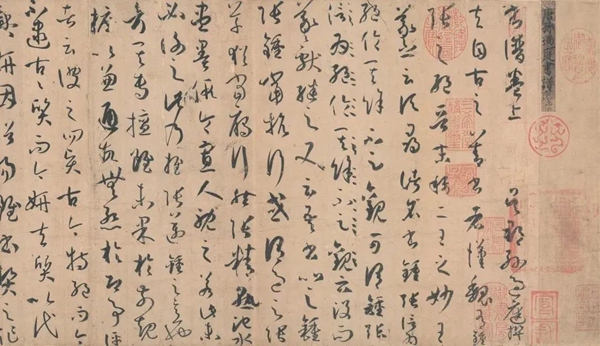 書譜卷上 吳郡孫過庭撰
夫自古之善書者漢魏有鍾
張之絕晉末稱二王之妙王
羲之云頃尋諸名書鍾張信為
絕倫其餘不足觀可謂鍾張
信為絕倫其餘不足觀云沒而
羲獻繼之又云吾書比之鍾
張鍾當抗行或謂過之張
草猶當鴈行然張精熟池水
盡墨假令寡人耽之若此未
必謝之此乃推張邁鍾之意也
考其專擅雖未果於前規
摭以兼通故無慚於即事評
者云彼之四賢古今特絕而今
不逮古古質而今妍夫質以代
興妍因俗易雖書契之作